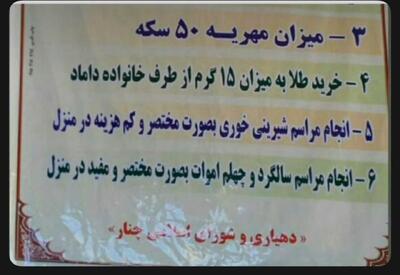 ۳ - میزان مهریه ۵۰ سکه
۴ - خرید طلا به میزان ۱۵ گرم از طرف خانواده داماد
۵ - انجام مراسم شیرینی خوری بصورت مختصر و کم هزینه در منزل
۶ - انجام مراسم سالگرد و چهلم اموات بصورت مختصر و مفید در منزل
« دهیاری و شورای اسلامی چنار»